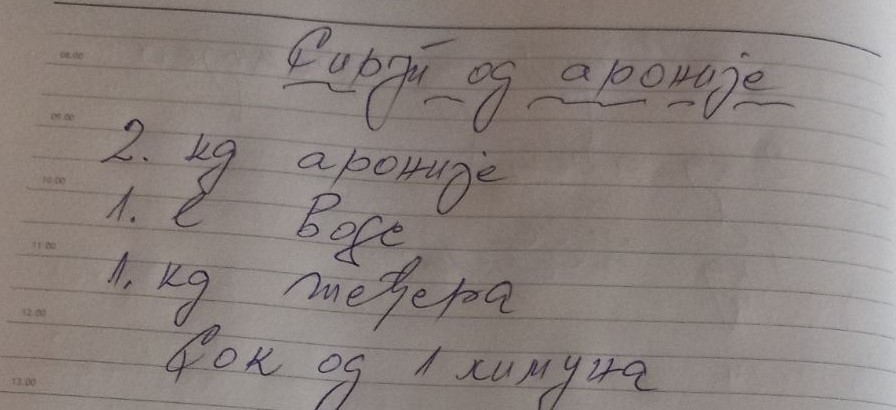 Сируп од ароније
08.00
09.00
2. кг ароније
10.00
1. л воде
11.00
1. кг шећера
12.00
Сок од 1 лимуна
13.00